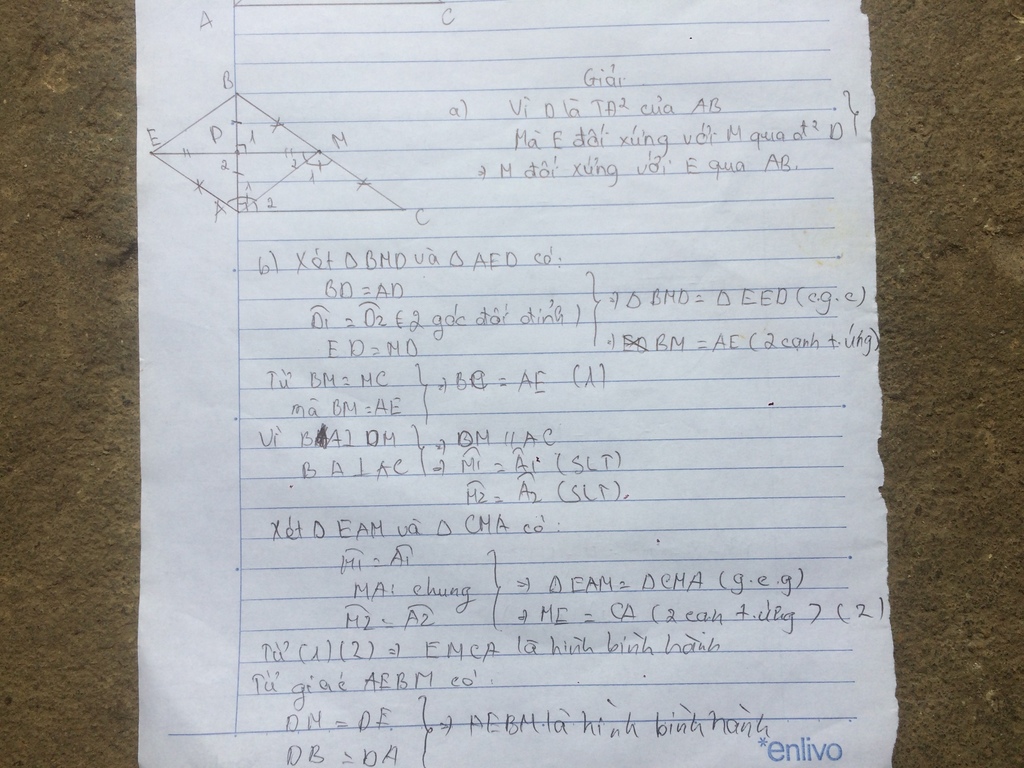 A C
B
E D 1 M
2 2 1
A 1 2 C
Giải
a) Vì D là TĐ² của AB
Mà E đối xứng với M qua đt² D
⇒ M đối xứng với E qua AB.
b) Xét Δ BMD và Δ AED có:
BD = AD
D1 = D2 (2 góc đối đỉnh)
ED = MD
⇒ Δ BMD = Δ EED (c.g.c)
⇒ BM = AE (2 cạnh t.ứng)
Từ BM = MC
mà BM = AE
⇒ BC = AE (1)
Vì BA ⊥ DM
BA ⊥ AC
⇒ DM // AC
⇒ M1 = A1 (SLT)
M2 = A2 (SLT).
Xét Δ EAM và Δ CMA có:
M1 = A1
MA: chung
M2 = A2
⇒ Δ EAM = Δ CMA (g.c.g)
⇒ ME = CA (2 cạnh t.ứng) (2)
Từ (1) (2) ⇒ EMCA là hình bình hành
Tứ giác AEBM có:
DM = DE
DB = DA
⇒ AEBM là hình bình hành
*enlivo